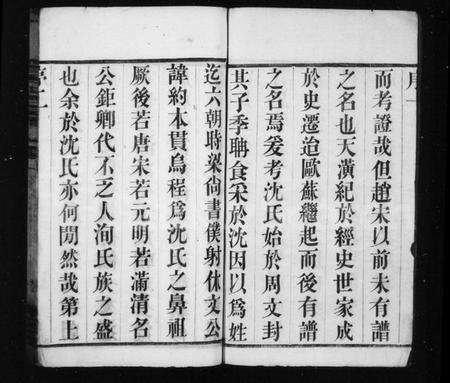 序一
而考證哉但趙宋以前未有譜
之名也天潢紀於經史世家成
於史遷迨歐蘇繼起而後有譜
之名焉爰考沈氏始於周文封
其子季聃食采於沈因以爲姓
迄六朝時梁尙書僕射休文公
諱約本貫烏程爲沈氏之鼻祖
厥後若唐宋若元明若滿清名
公鉅卿代不乏人洵氏族之盛
也余於沈氏亦何閒然哉第上
序二